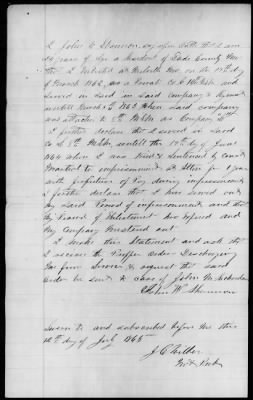 I John W Shannon say upon oath that I am
years of age a Resident of Dade County Mo
that I Enlisted at on the 14th day
of March 1862, as a Private Co. and
served in said company & Regiment
untill March 5 1863 when said company
was attached to 8th as Company "L"
I further declare that I served in said
Co L 8th untill the 19th day of June
1864 when I was tried & sentenced by Court
Martial to imprisonment at Alton for 1 year
with forfeiture of Pay during imprisonment
I further declare that I have served out
my said Period of imprisonment and that
my Period of Enlistment has expired and
my Company Mustered out
I make this Statement and ask that
I receive the Proper order Discharging
me from Service & request that said
order be sent to care of John M
John W Shannon
Sworn to and subscribed before me this
12th day of July 1865